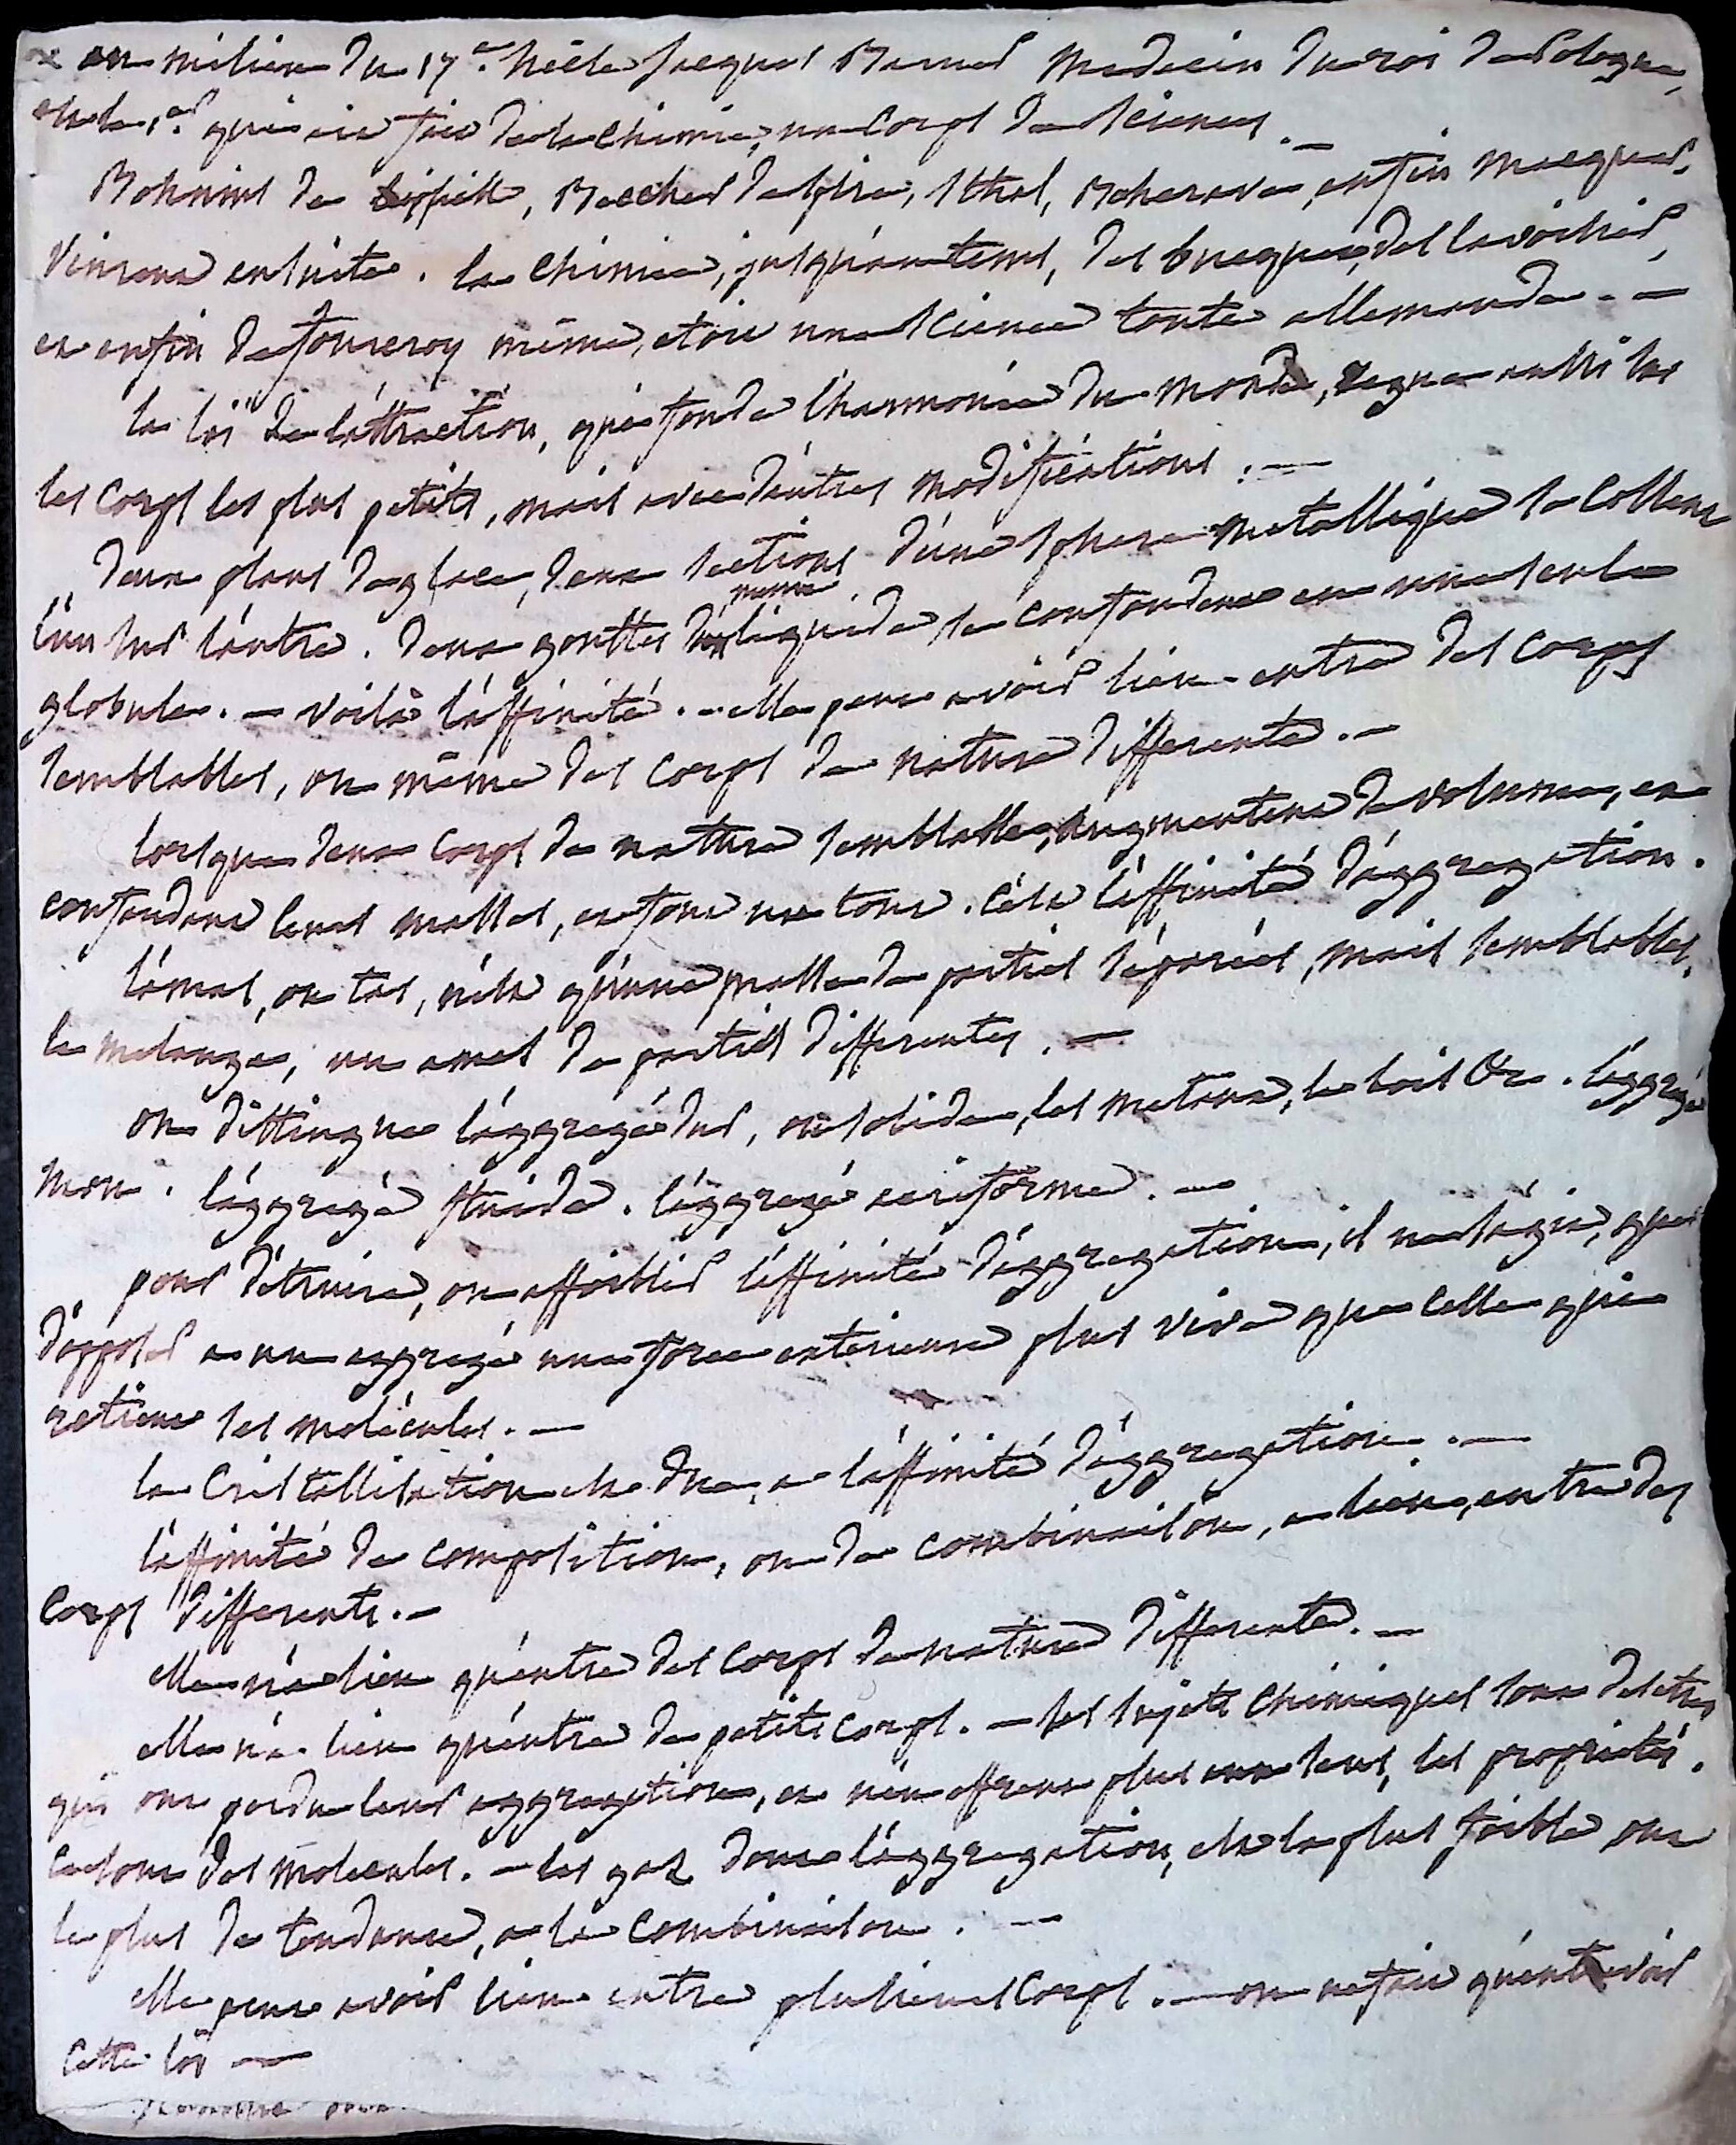 au milieu du 17e. siécle Jacques Barner medecin du roi de Pologne,
est le 1er. qui ait fait de la chimie, un corps de sciences. —
Bohnius de Leipsick, Beccher de Spire, Sthal, Boherave, enfin Macquer,
vinrent ensuite. la chimie, jusqu'au tems, des bucquet, des lavoisier,
et enfin de fourcroy même, etoit une science toute allemande. —
la loi de l'attraction, qui fonde l'harmonie du monde, regne aussi sur
les corps les plus petits, mais avec d'autres modifications. —
deux plans de glace, deux sections d'une sphere metallique se collent
l'un sur l'autre. deux gouttes du même liquide se confondent en une seule
globule. — voilà l'affinité. — elle peut avoir lieu entre des corps
semblables, ou même des corps de nature differente. —
lorsque deux corps de nature semblable, augmentent de volume, et
confondent leurs masses, et font un tout. c'est l'affinité d'aggregation.
l'amas, ou tas, n'est qu'une masse de partiés séparées, mais semblables,
le melange, un amas de partiés differentes. —
on distingue l'aggregé dur, ou solide, les metaux, le bois &c. l'aggregé
mou. l'aggregé fluide. l'aggregé aeriforme. —
pour détruire, ou affoiblir l'affinité d'aggregation, il ne s'agit, que
d'opposer a un aggregé une force exterieure plus vive que celle qui
retient ses molécules. —
la cristallisation est due, a l'affinité d'aggregation. —
l'affinité de composition, ou de combinaison, a lieu, entre des
corps differents. —
elle n'a lieu qu'entre des corps de nature differente. —
elle n'a lieu qu'entre de petits corps. — les sujets chimiques sont des etres
qui ont perdu leur aggregation, et n'en offrent plus aux sens, les proprietés.
ce sont des molecules. — les gaz dont l'aggregation, est la plus foible ont
le plus de tendance, a la combinaison. —
elle peut avoir lieu entre plusieurs corps. — on ne fait qu'entrevoir
cette loi —